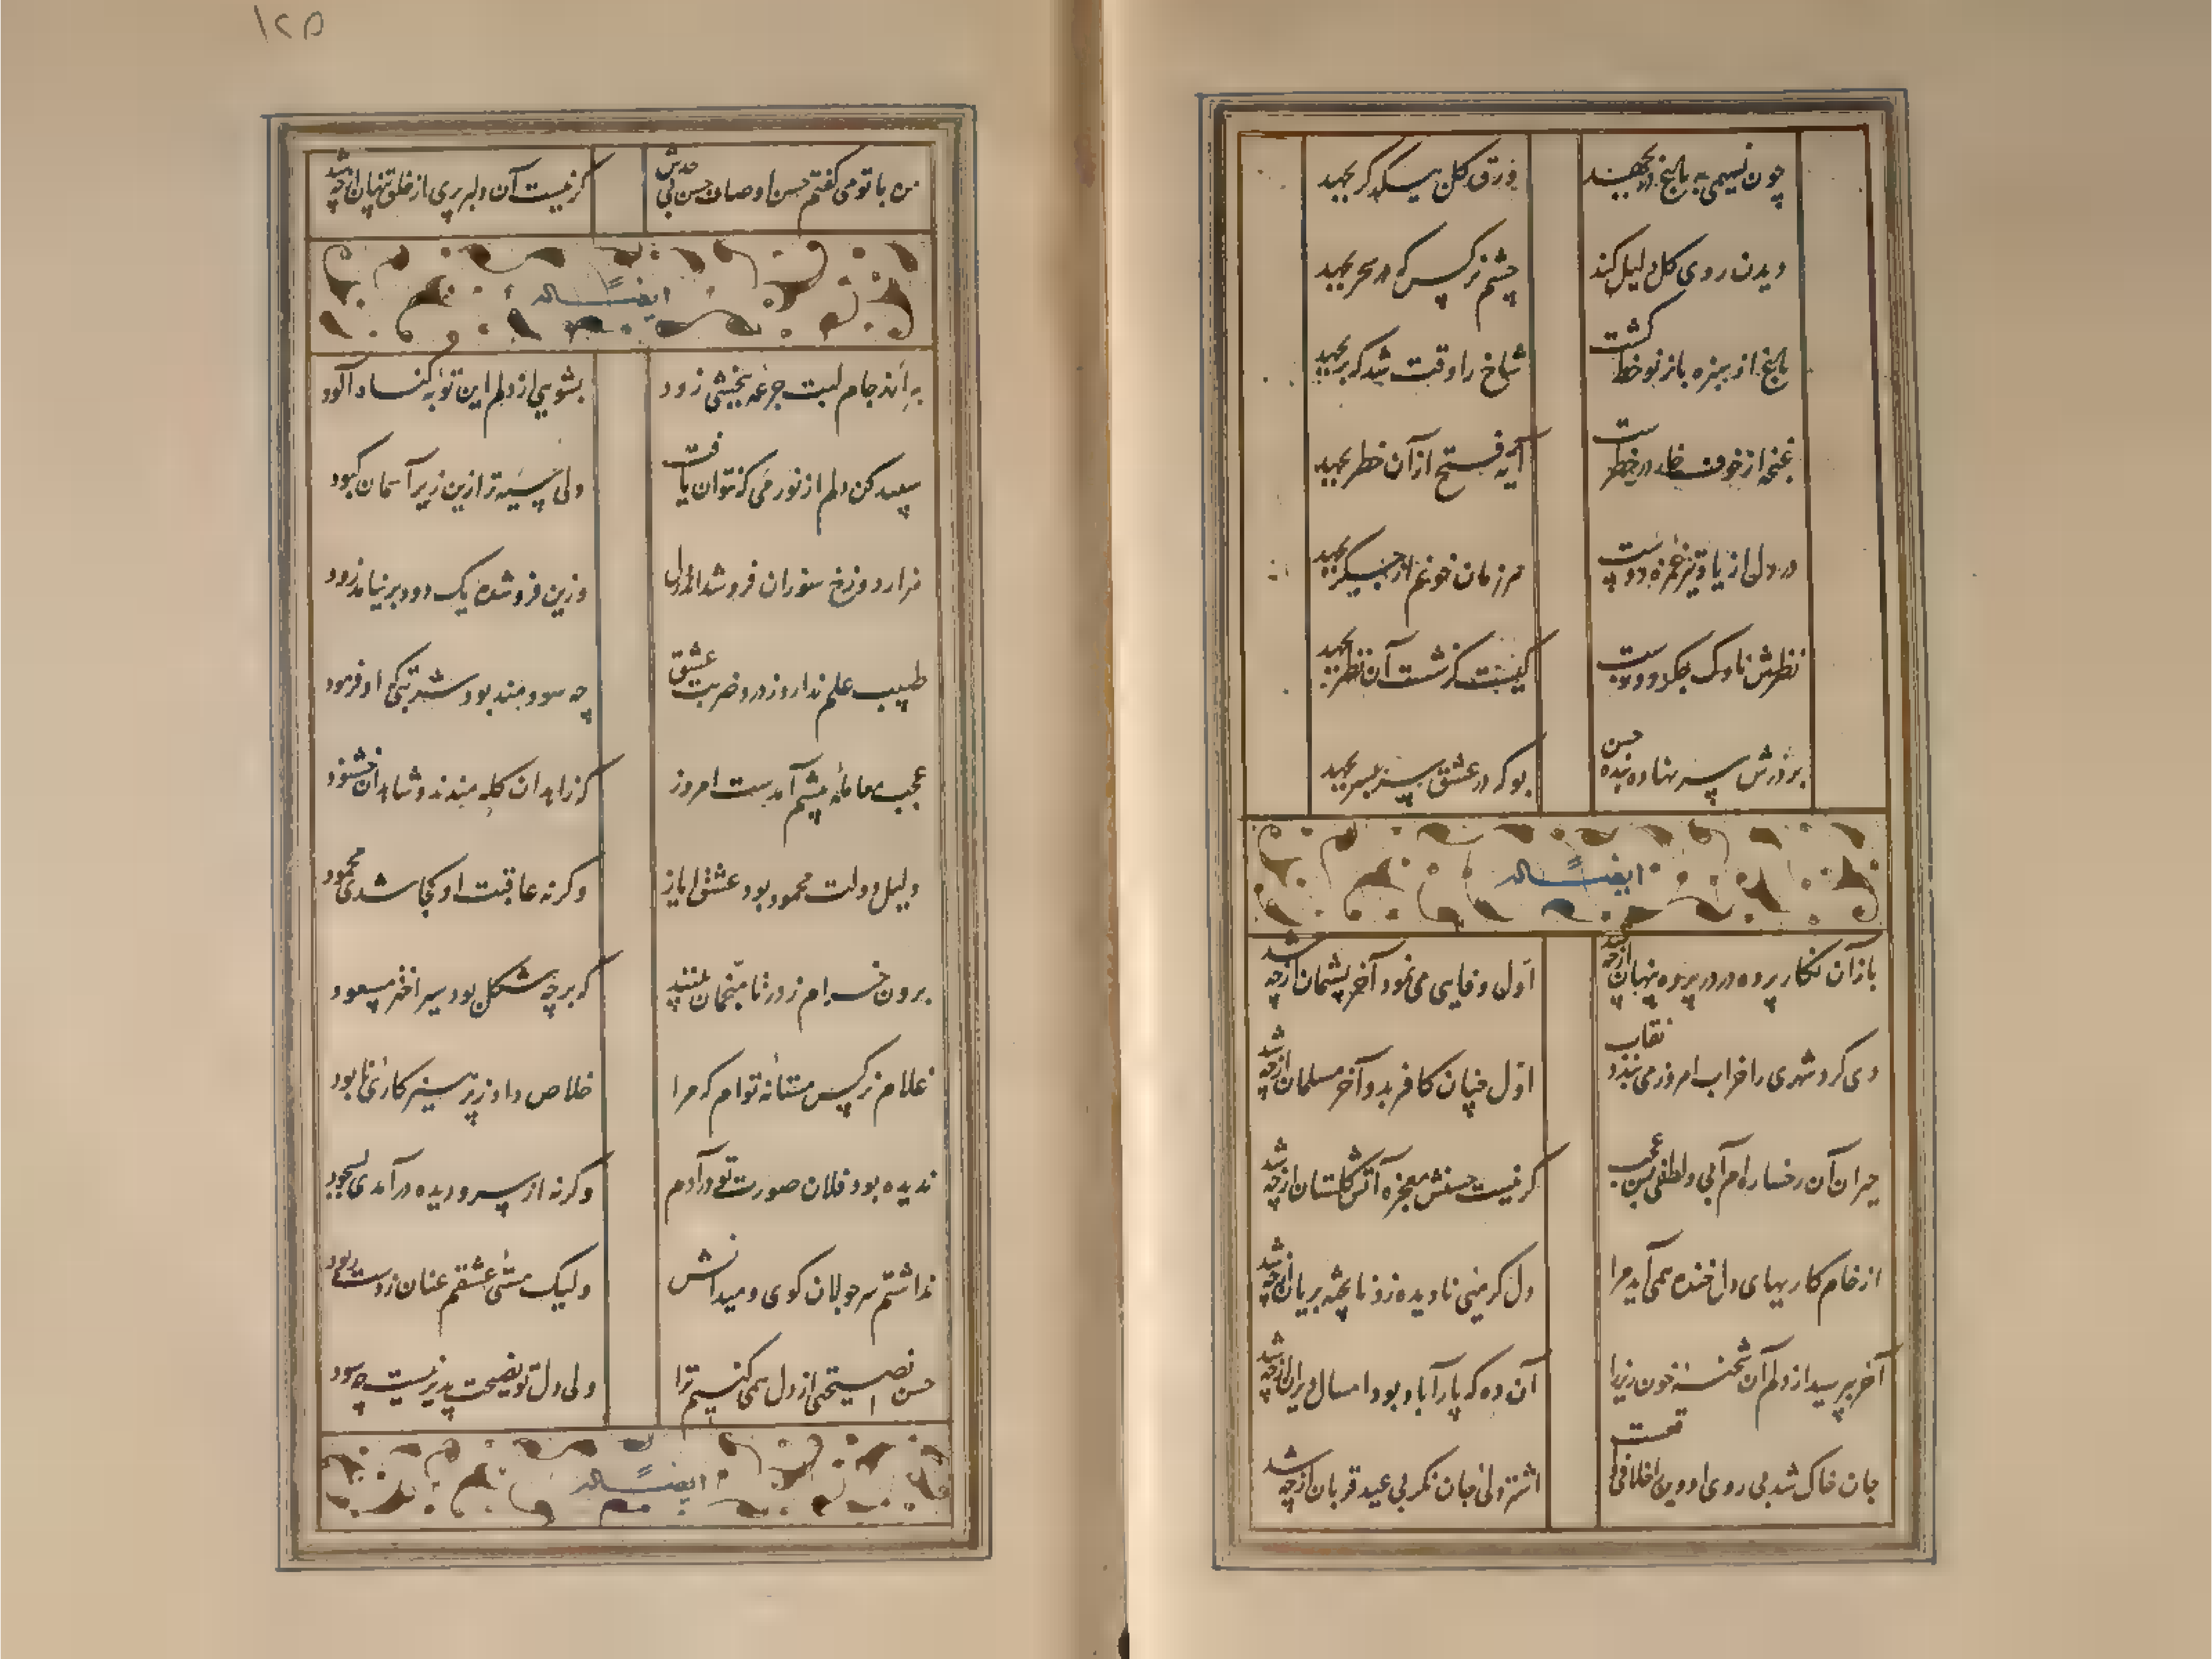 چون نسیمی به باغ در بجهید
ورق گل بیکدگر بجهید
دیدن روی گل دلیل کند
چشم نرگس که در سحر بجهید
باغ از سبزه باز نو خط گشت
شاخ را وقت شد که بر بجهید
غنچه از خوف خار در خطرست
آیه فتح از آن خطر بجهید
در دل از یاد تیر غمزه دوست
هر زمان خونم از جگر بجهید
نظرش ناوک جگر دوزست
کیست کز شست آن نظر بجهید
بر درش سر نهاده بنده حسن
بو که در عشق سر بسر بجهید
ایضاً له
باز آن نگار پرده در در پرده پنهان از چه شد
اول وفایی می نمود آخر پشیمان از چه شد
دی کرد شهری را خراب امروز می بندد نقاب
اول چنان کافر بد و آخر مسلمان از چه شد
حیران آن رخساره ام آبی و لطفی بس عجب
گر نیست حسنش معجزه آتش گلستان از چه شد
از خام کاریهای دل خنده همی آید مرا
دل گرمیی نادیده زو ناپخته بریان از چه شد
آخر بپرسید از دلم آن شحنه خون ریز را
آن ده که پار آباد بود امسال ویران از چه شد
جان خاک شد بی روی او وین اخلافی
اشتر دلی جان نگر بی عید قربان از چه شد
۱۲۵
من با تو می گفتم حسن اوصاف حسن بی حدش
گر نیست آن دلبر پری از خلق پنهان از چه شد
ایضاً له
به آنه ز جام لبت جرعه بخشی زود
بشویی از دلم این توبه گناه آلود
سپید کن دلم از نور می که نتوان یافت
دلی سیه تر ازین زیر آسمان کبود
هزار دوزخ سوزان فرو شد اندر دل
وزین فرو شده یک دود بر نیامد زود
طبیب علم ندارد ز درد ضربت عشق
چه سودمند بود شربتی که او فرمود
عجب معامله پیشم آمدست امروز
که زاهدان گله مندند و شاهدان خشنود
دلیل دولت محمود بود عشق ایاز
وگرنه عاقبت او کجا شدی محمود
برون خرام ز در تا منجمان بینند
که بر چه شکل بود سیر اختر مسعود
غلام نرگس مستانه توام که مرا
خلاص داد ز تزویر کار نابود
ندیده بود فلان صورت تو در آدم
وگرنه از سر و دیده در آمدی بسجود
نداشتم سر جولان گوی و میدانش
ولیک مستی عشقم عنان ز دست ربود
حسن نصیحتی از دل همی کنیم ترا
ولی دل تو نصیحت پذیر نیست چه سود
ایضاً له